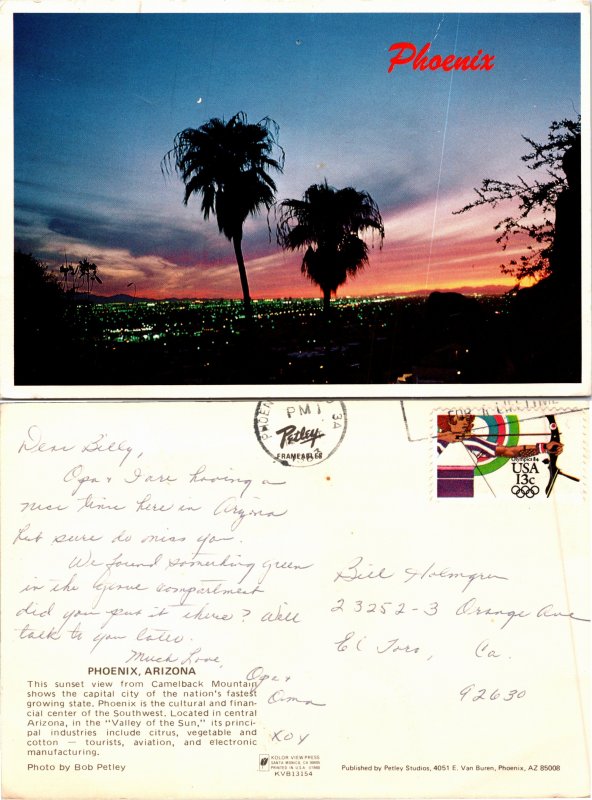 Phoenix
Dear Billy,
Opa & I are having a
nice time here in Arizona
but sure do miss you.
We found something green
in the glove compartment
did you put it there? Well
talk to you later.
Much Love,
Opa &
Oma
XOX
PHOENIX, ARIZONA
This sunset view from Camelback Mountain
shows the capital city of the nation's fastest
growing state. Phoenix is the cultural and finan-
cial center of the Southwest. Located in central
Arizona, in the "Valley of the Sun," its princi-
pal industries include citrus, vegetable and
cotton — tourists, aviation, and electronic
manufacturing.
Photo by Bob Petley
PM
Petley
FRAMEABLES
FOR A LIFETIME
Olympics 84
USA
13c
Bill Holmgren
23252-3 Orange Ave
El Toro, Ca.
92630
KOLOR VIEW PRESS
KVB13154
Published by Petley Studios, 4051 E. Van Buren, Phoenix, AZ 85008